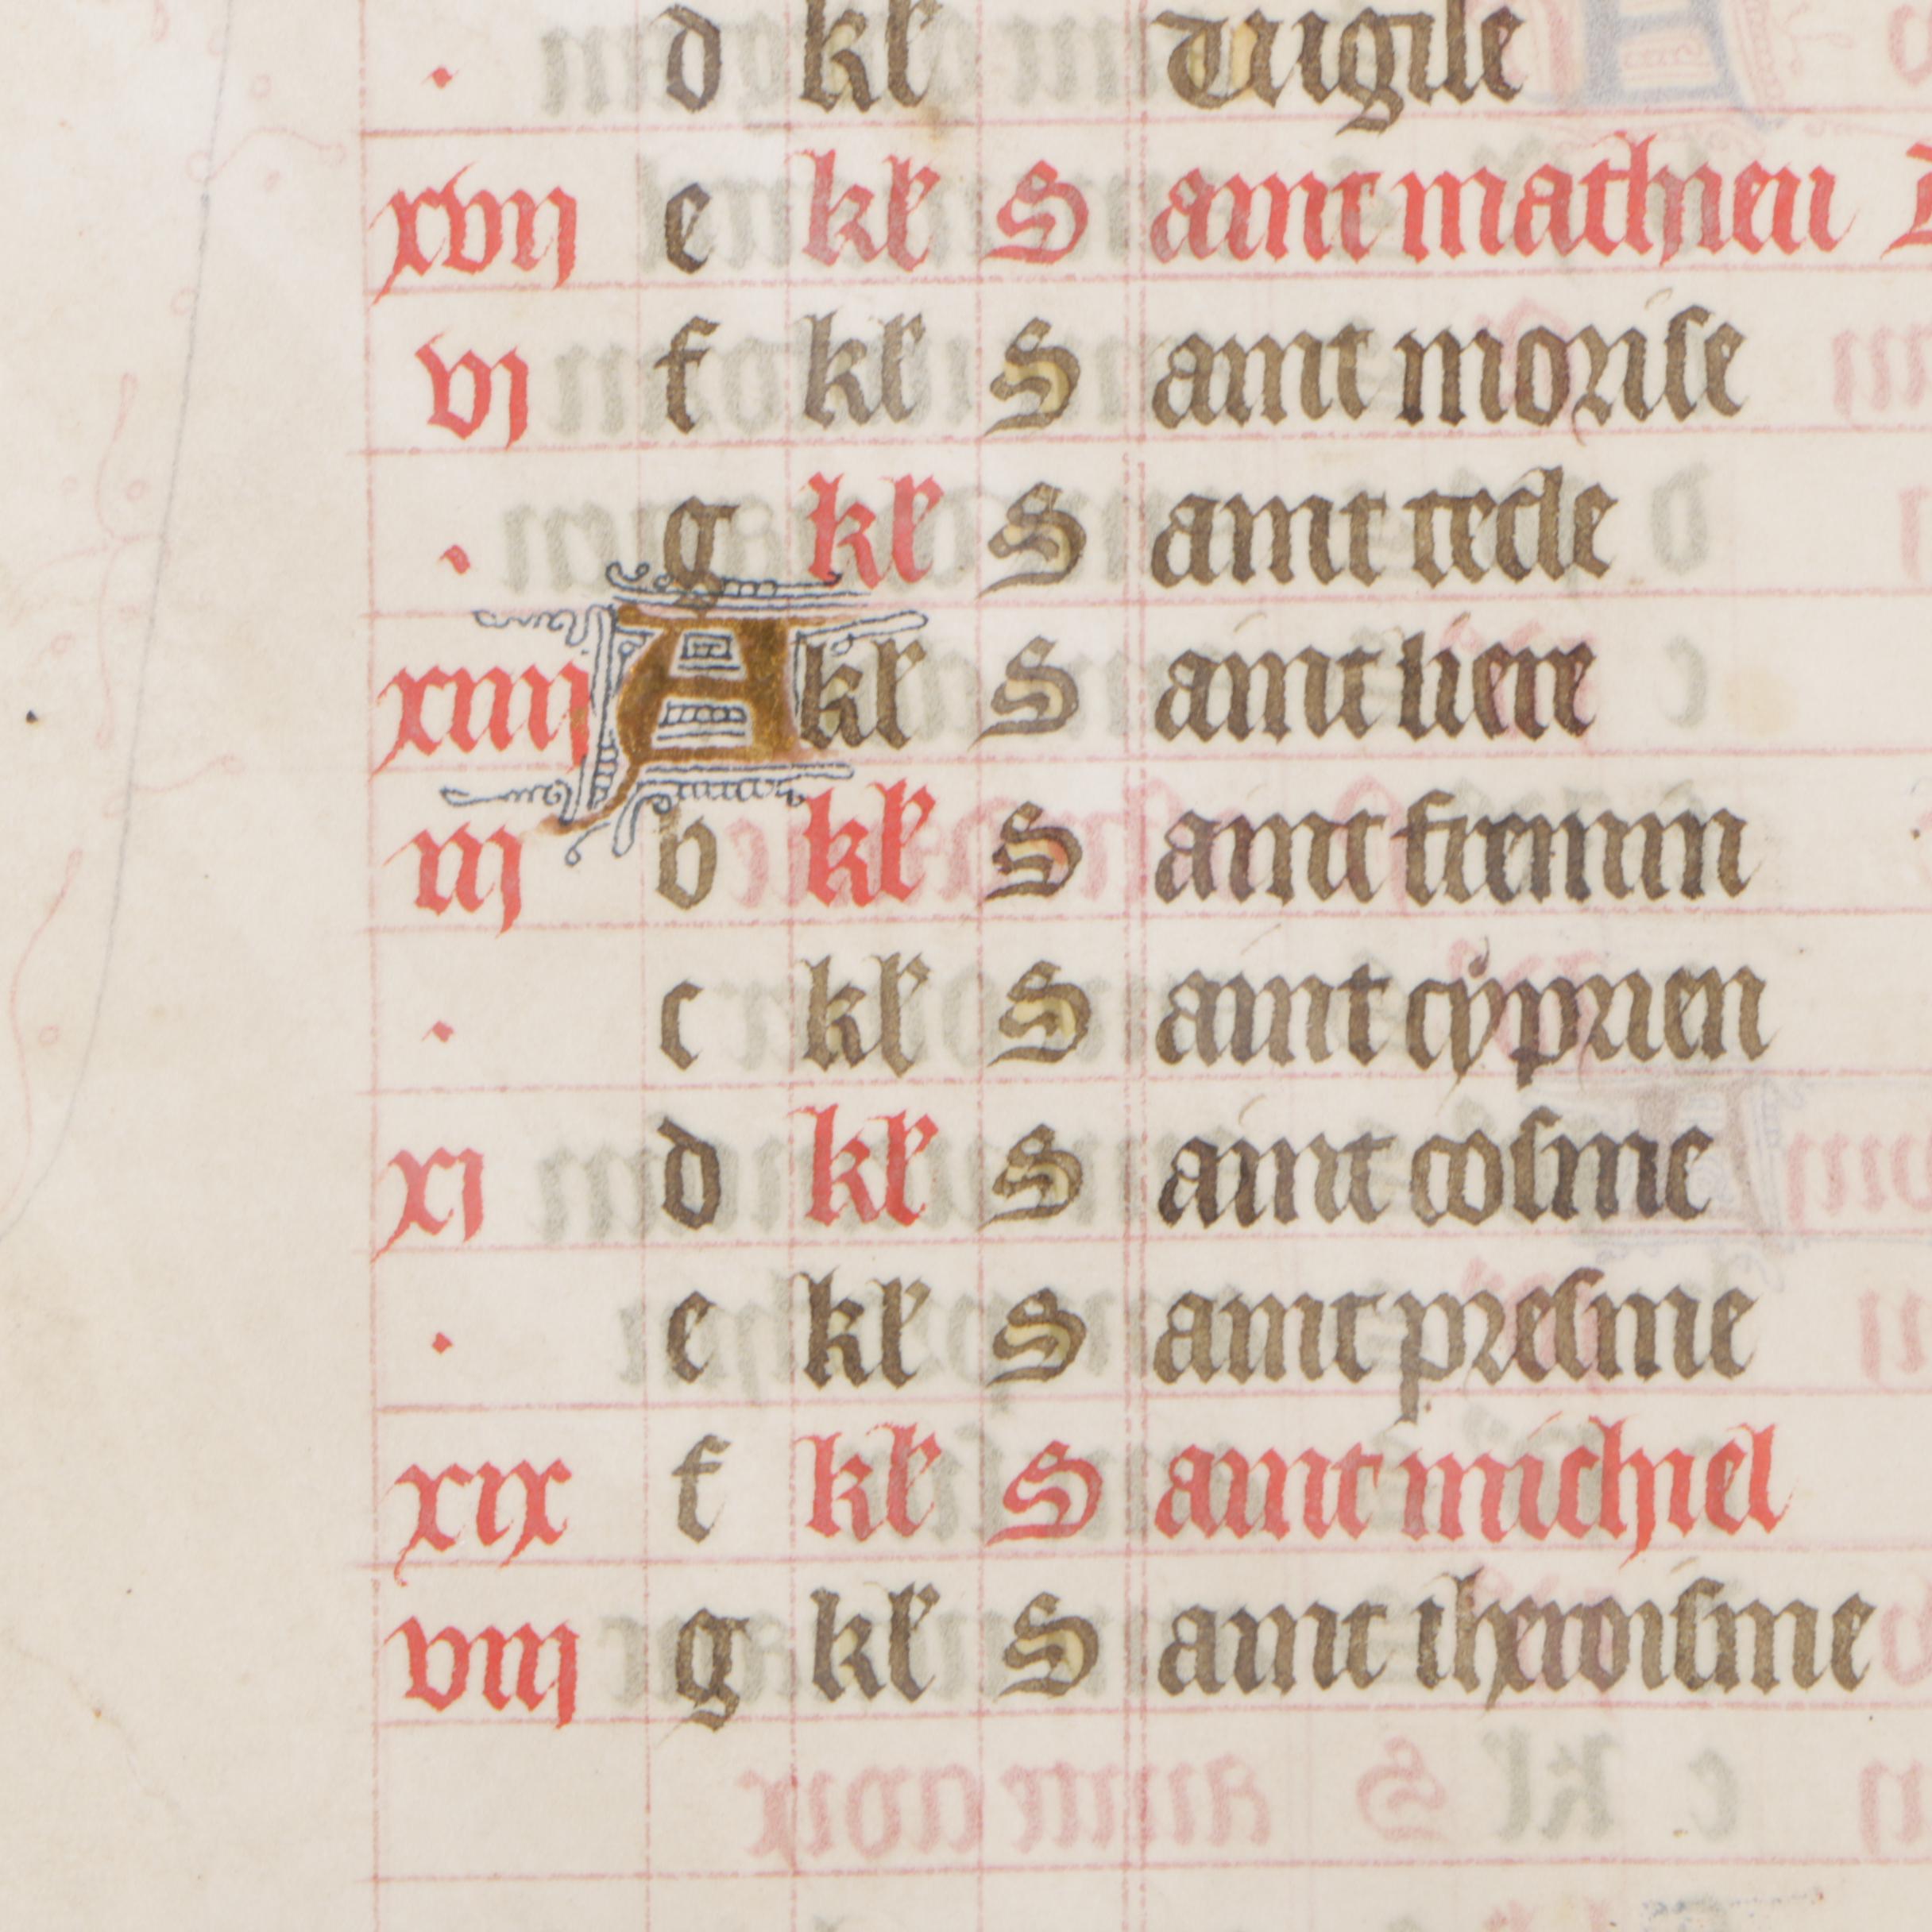 . d kl vigile
xvij e kl S aint mathieu
vj f kl S aint morise
. g kl S aint tecle
xiiij A kl S aint liere
iij b kl S aint fremin
. c kl S aint cyprien
xj d kl S aint cosme
. e kl S aint presme
xix f kl S aint michiel
viij g kl S aint iheroisme